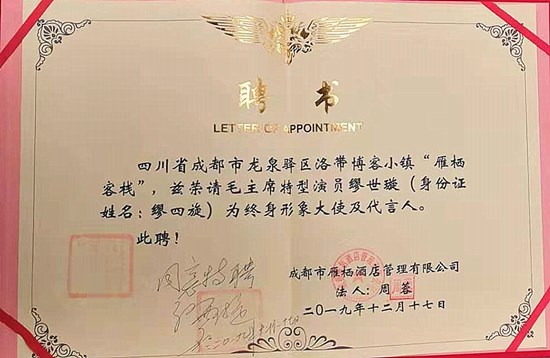 聘 书
LETTER OF APPOINTMENT
四川省成都市龙泉驿区洛带博客小镇“雁栖
客栈”，兹荣请毛主席特型演员缪世璇（身份证
姓名：缪四旋）为终身形象大使及代言人。
此聘！
同意特聘
成都市雁栖酒店管理有限公司
法人：周蓉
二〇一九年十二月十七日